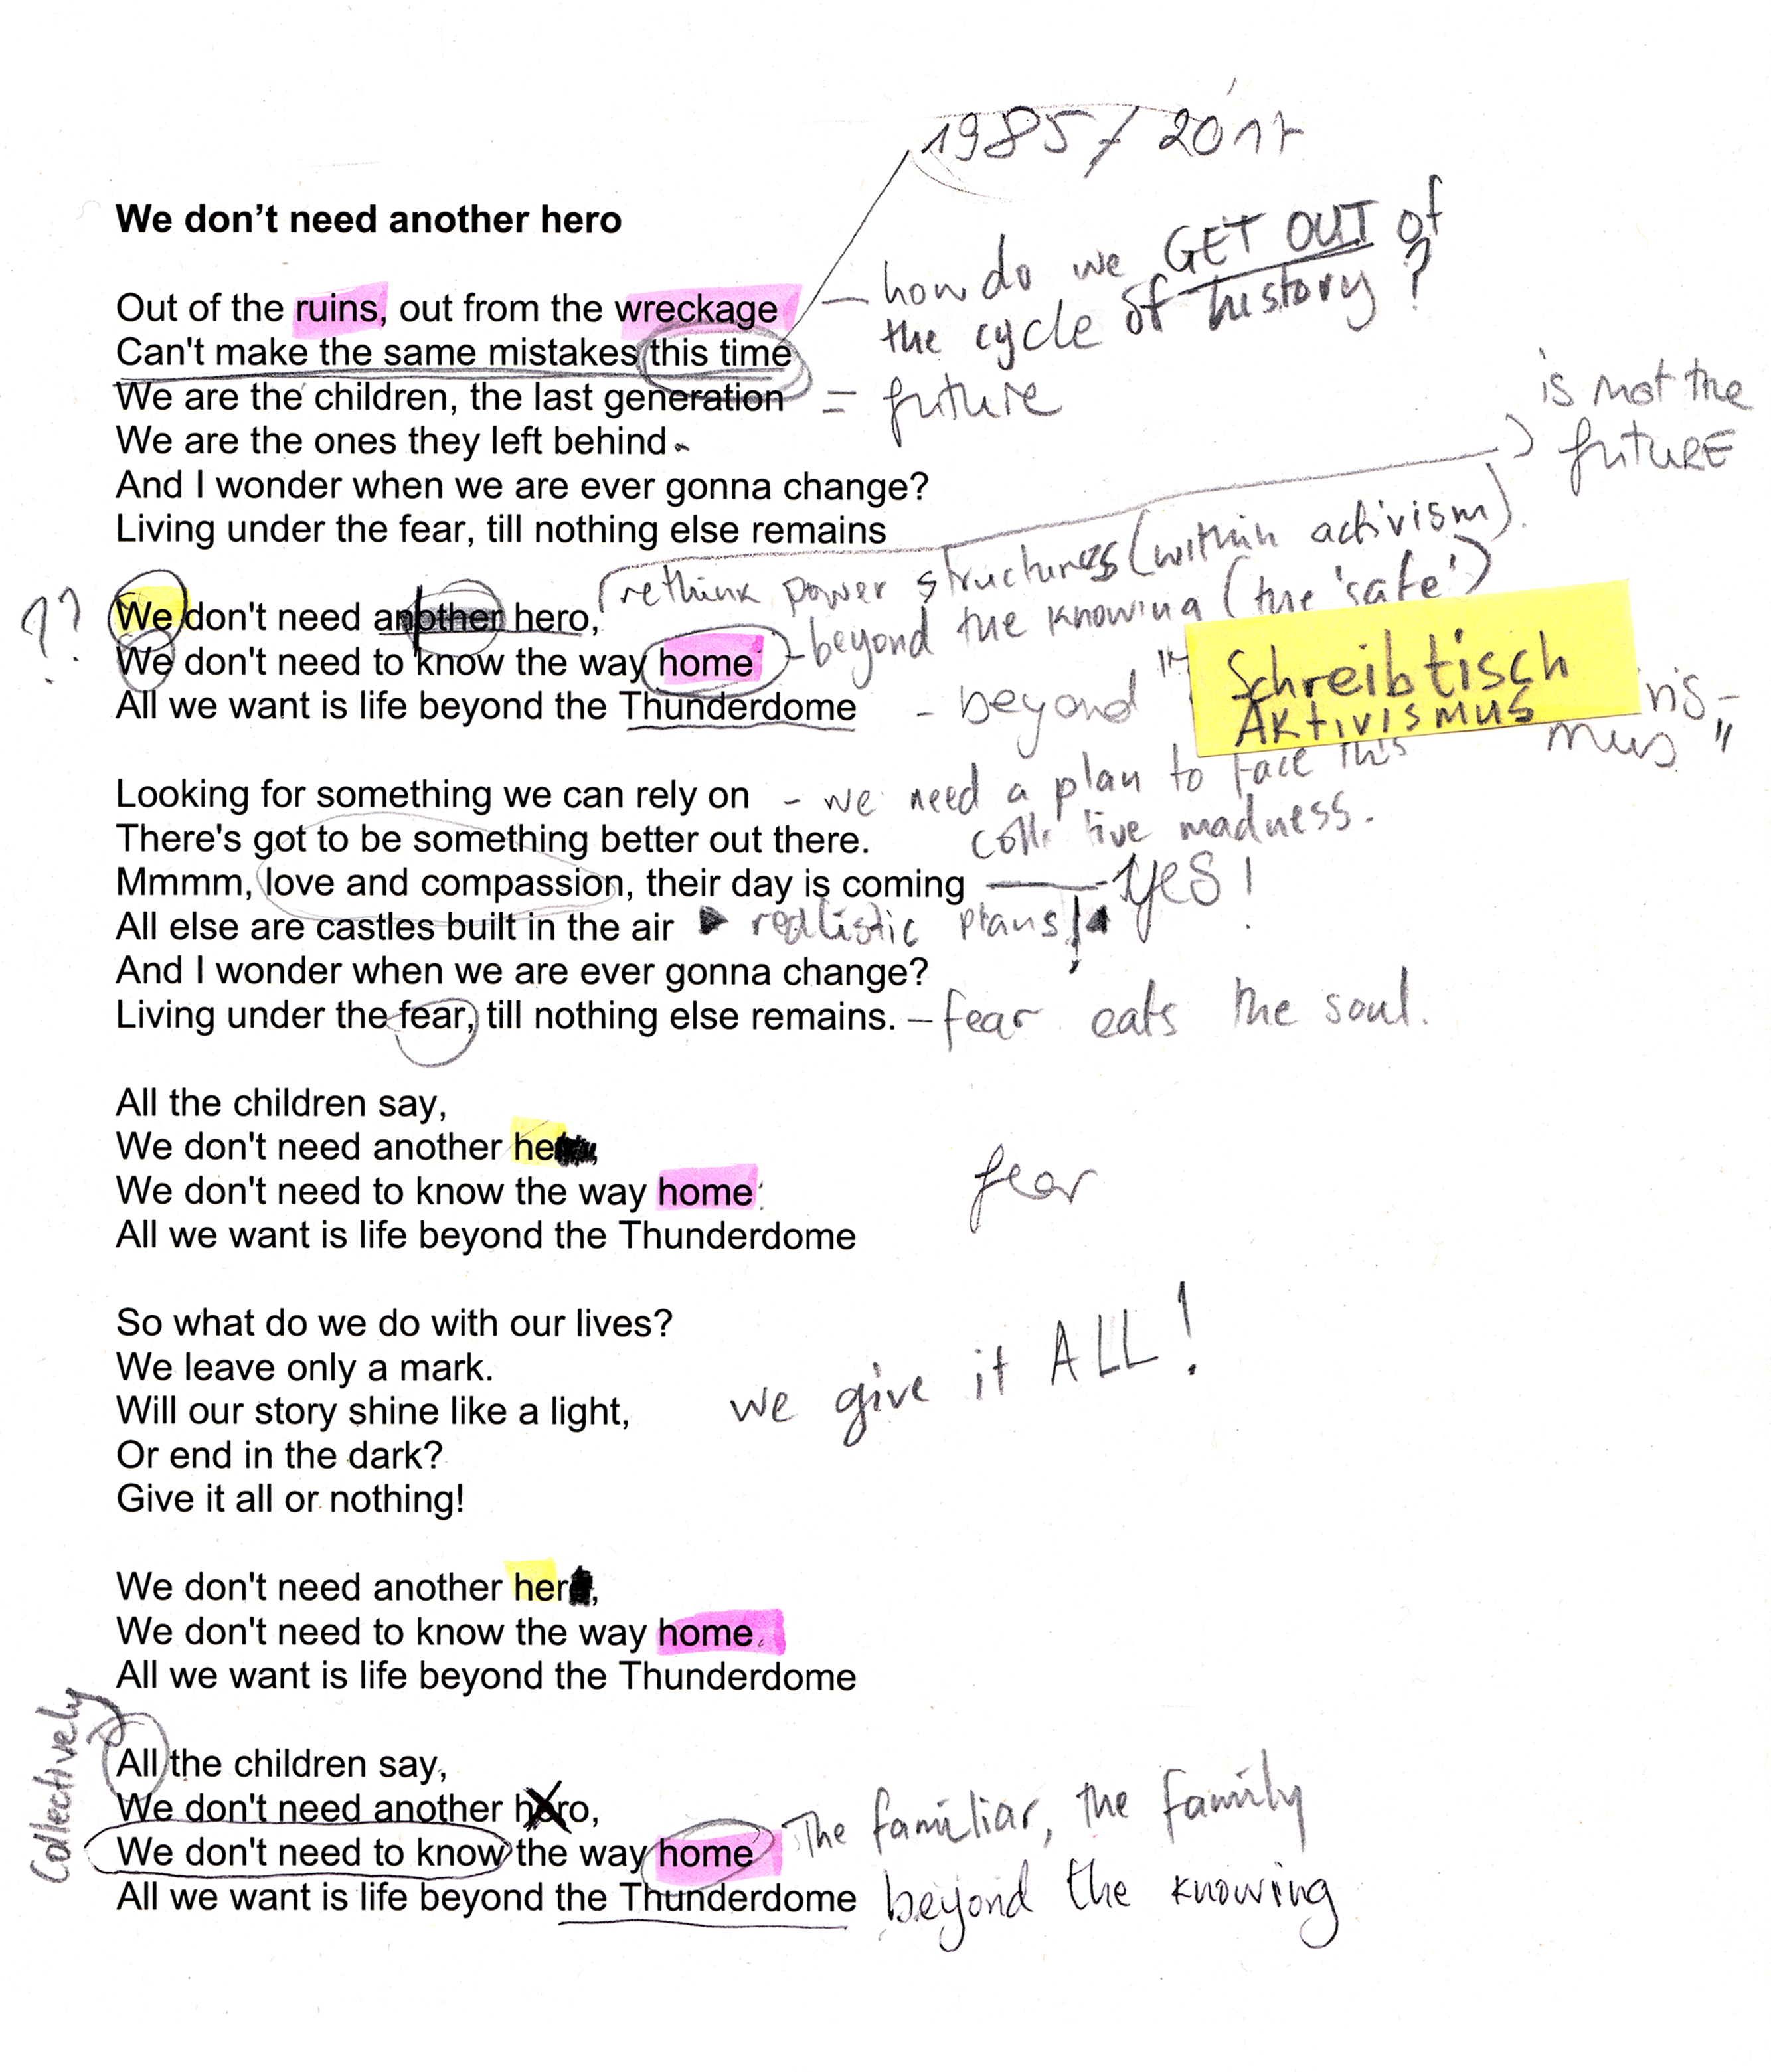 1985 / 2017
We don't need another hero
Out of the ruins, out from the wreckage – how do we GET OUT of
the cycle of history?
Can't make the same mistakes this time
We are the children, the last generation = future
We are the ones they left behind
is not the
FUTURE
And I wonder when we are ever gonna change?
Living under the fear, till nothing else remains
?? We don't need another hero, rethink power structures (within activism).
We don't need to know the way home - beyond the knowing (the 'safe')
All we want is life beyond the Thunderdome - beyond
Schreibtisch
AKTIVISMUS
mus"
Looking for something we can rely on - we need a plan to face this
madness.
There's got to be something better out there.
Mmmm, love and compassion, their day is coming — yes!
All else are castles built in the air ▶ realistic plans!
And I wonder when we are ever gonna change?
Living under the fear, till nothing else remains. – fear eats the soul.
All the children say,
We don't need another he
fear
We don't need to know the way home
All we want is life beyond the Thunderdome
So what do we do with our lives?
We leave only a mark.
Will our story shine like a light,
we give it ALL!
Or end in the dark?
Give it all or nothing!
We don't need another her,
We don't need to know the way home
All we want is life beyond the Thunderdome
Collectively
All the children say,
We don't need another hero,
We don't need to know the way home The familiar, the family
All we want is life beyond the Thunderdome beyond the knowing